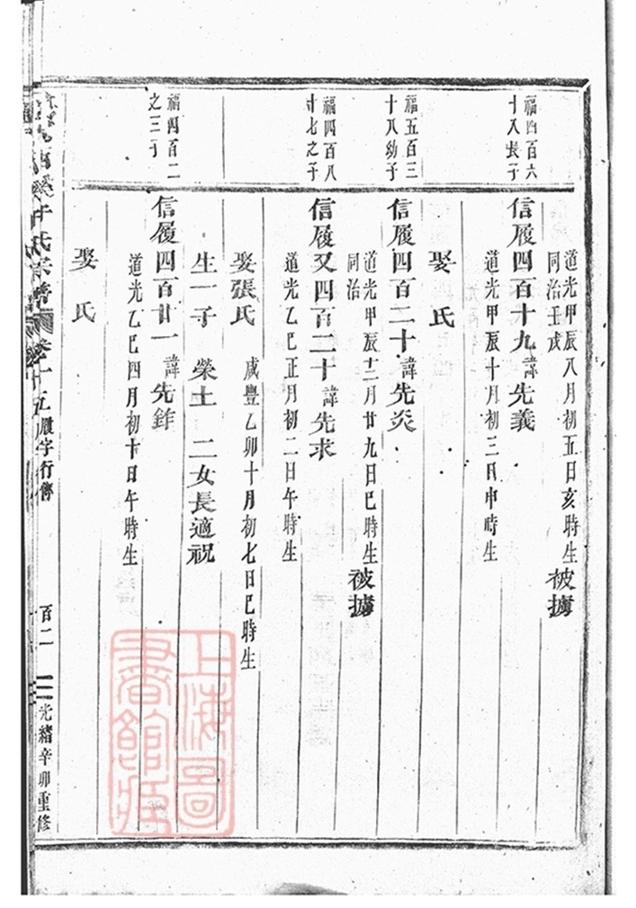 道光甲辰八月初五日亥時生 被擄
同治壬戌
福四百六
十八長子
信履四百十九 諱 先義
道光甲辰十月初三日申時生
娶 氏
福五百三
十八幼子
信履四百二十 諱 先炎
道光甲辰十二月廿九日巳時生 被擄
同治
福四百八
十七之子
信履又四百二十 諱 先求
道光乙巳正月初二日午時生
娶張氏 咸豐乙卯十月初七日巳時生
生一子 榮土 二女長適祝
福四百二
之三子
信履四百廿一 諱 先鉾
道光乙巳四月初十日午時生
娶 氏
氏宗譜 卷十五 履字行傳 百二 光緒辛卯重修
上海圖
書館藏